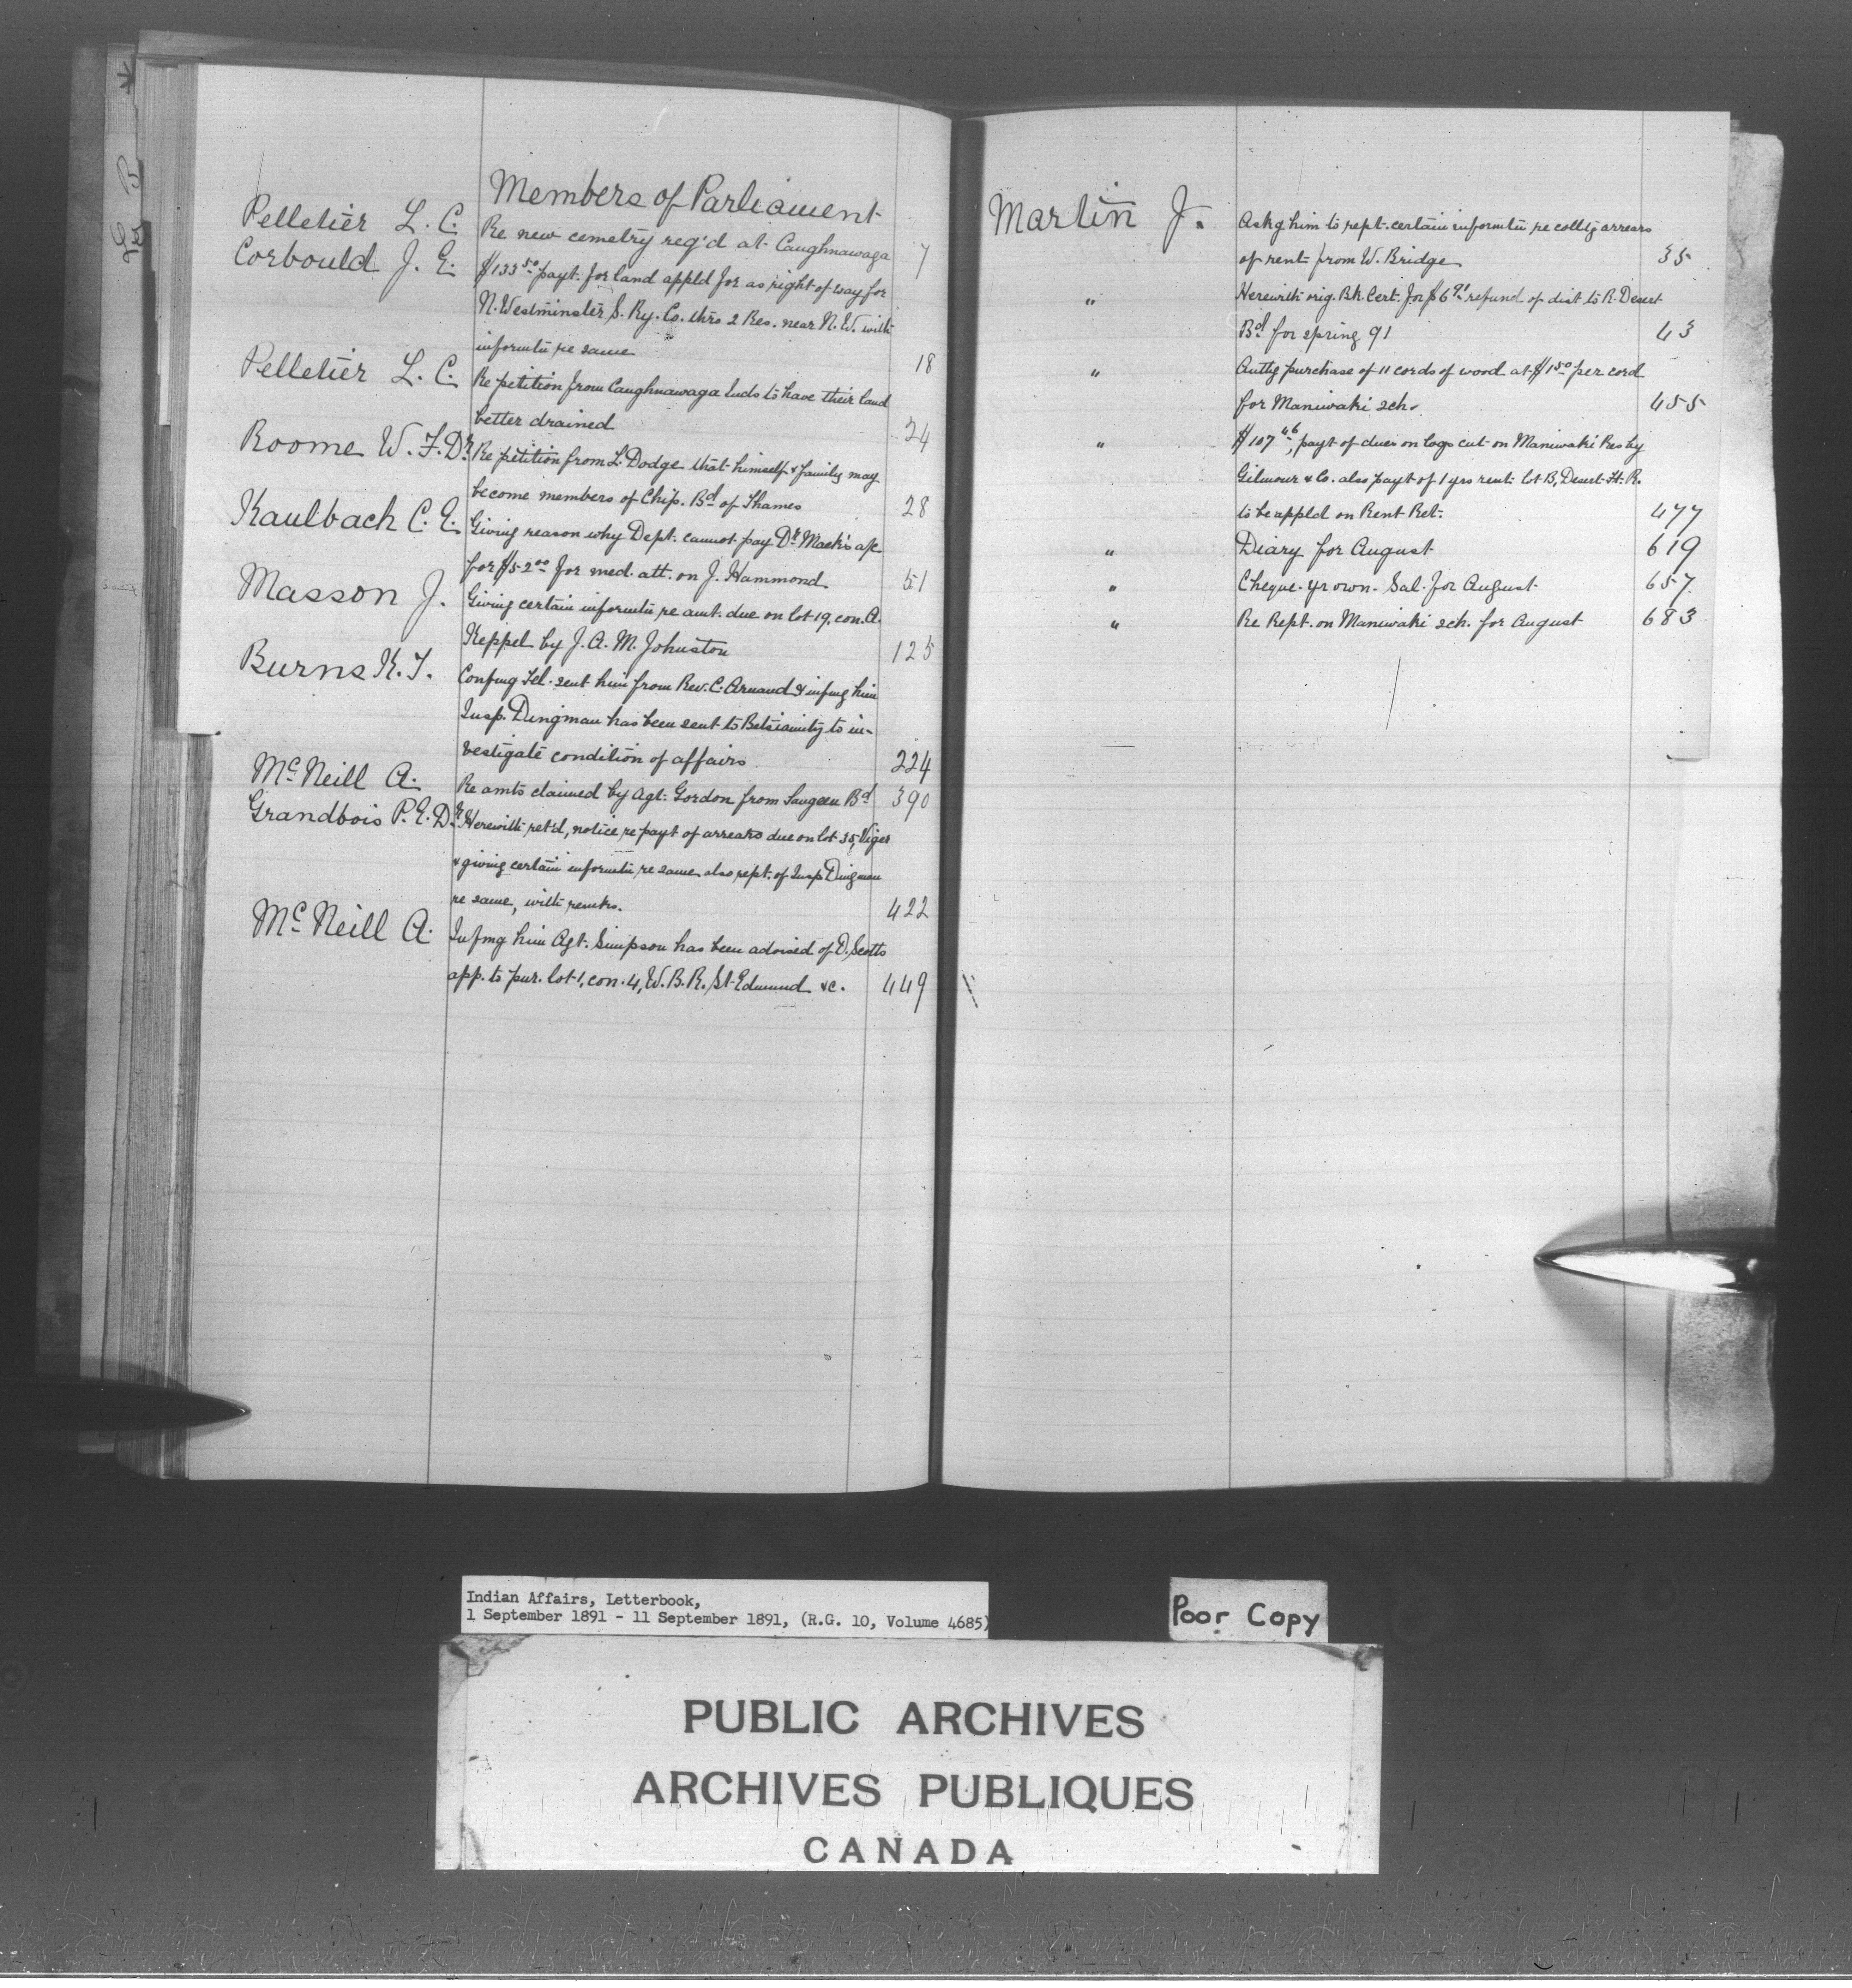 Members of Parliament
Pelletier L. C. Re new cemetry req'd at Caughnawaga 7
Corbould J. E. $133.50 payt. for land appld for as right of way for
N. Westminster S. Ry. Co. thro 2 Res. near N.W. with
informtn re same 18
Pelletier L. C. Re petition from Caughnawaga Inds to have their land
better drained 24
Roome W. F. Dr. Re petition from L. Dodge that himself & family may
become members of Chip. Bd of Thames 28
Kaulbach C. E. Giving reason why Dept. cannot pay Dr Mack's a/c
for $52.00 for med. att. on J. Hammond 51
Masson J. Giving certain informtn re amt. due on lot 19, con. A.
Keppel by J. A. M. Johnston 125
Burns K. F. Confmg Tel. sent him from Rev. C. Arnaud & infmg him
Insp. Dingman has been sent to Betsiamitz to in-
vestigate condition of affairs 224
McNeill A. Re amts claimed by Agt. Gordon from Saugeen Bd 390
Grandbois P. E. Dr. Herewith ret'd, notice re payt of arrears due on lot 35, Viger
& giving certain informtn re same also rept. of Insp Dingman
re same, with remks. 422
McNeill A. Infmg him Agt. Simpson has been advised of D. Scotts
app. to pur. lot 1, con. 4, W.B.R. St Edmund &c. 449
Martin J. Askg him to rept. certain informtn re collg arrears
of rent from W. Bridge 35
" Herewith orig. Bk. Cert. for $6.91 refund of dist to R. Desert
Bd for spring 91 43
" Authg purchase of 11 cords of wood at $1.50 per cord
for Maniwaki sch. 455
" $107.46, payt of dues on logs cut on Maniwaki Res by
Gilmour & Co. also payt of 1 yrs rent lot B, Desert Ft. R.
to be appld on Rent Ret. 477
" Diary for August 619
" Cheque yr own Sal. for August 657
" Re Rept. on Maniwaki sch. for August 683
Indian Affairs, Letterbook,
1 September 1891 - 11 September 1891, (R.G. 10, Volume 4685)
Poor Copy
PUBLIC ARCHIVES
ARCHIVES PUBLIQUES
CANADA